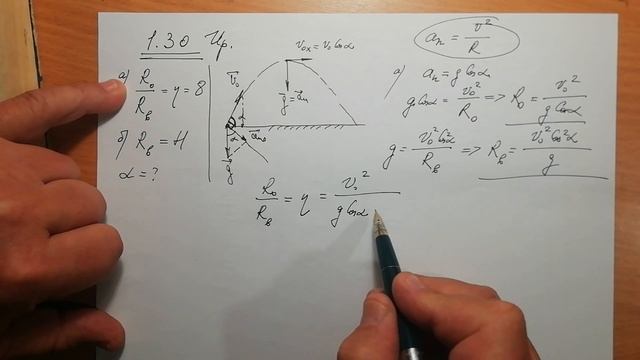 1.30 Ир.
а) R₀/Rв = η = 8
б) Rв = H
α = ?
v₀ₓ = v₀ Cosα
v₀
g = aₙ
α
α
aₙ₀
g
aₙ = v²/R
а) aₙ = g Cosα
g Cosα = v₀²/R₀ => R₀ = v₀²/(g Cosα)
g = v₀² Cos²α/Rв => Rв = v₀² Cos²α/g
R₀/Rв = η = v₀²/(g Cosα